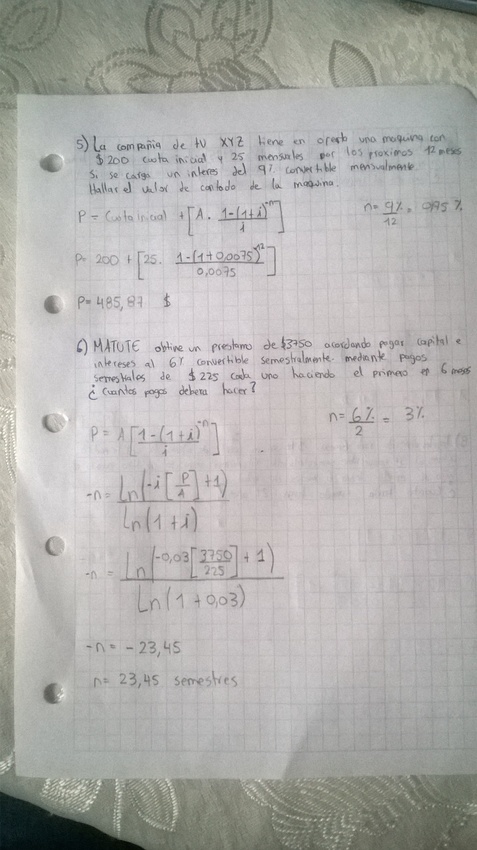 5) La compañia de tv XYZ tiene en oferta una maquina con
$ 200 cuota inicial y 25 mensuales por los proximos 12 meses
Si se carga un interes del 9% convertible mensualmente.
Hallar el valor de contado de la maquina.
P = Cuota inicial + [A. 1-(1+i)^-n / i]
n= 9% / 12 = 0,75 %
P= 200 + [25. 1-(1+0,0075)^-12 / 0,0075]
P= 485,87 $
6) MATUTE obtine un prestamo de $3750 acordando pagar capital e
intereses al 6% convertible semestralmente. mediante pagos
semestrales de $ 225 cada uno haciendo el primero en 6 meses
¿ Cuantos pagos debera hacer?
n= 6% / 2 = 3%
P = A [1-(1+i)^-n / i]
-n= Ln(-i [P/A] +1) / Ln(1+i)
-n = Ln(-0,03 [3750/225] + 1) / Ln(1+0,03)
-n = - 23,45
n= 23,45 semestres